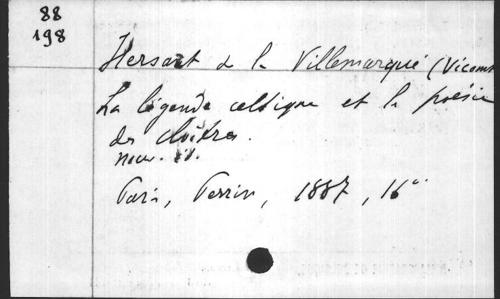 88
198
Hersart de la Villemarqué (Vicomt
La légende celtique et la poésie
des cloîtres.
nouv. éd.
Paris, Perrin, 1887, 16°